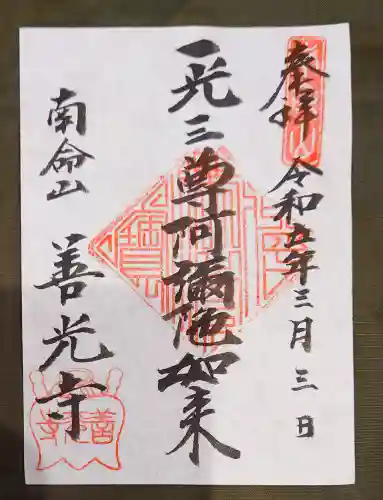 奉拝
令和五年三月三日
一光三尊阿彌陀如来
南命山
善光寺